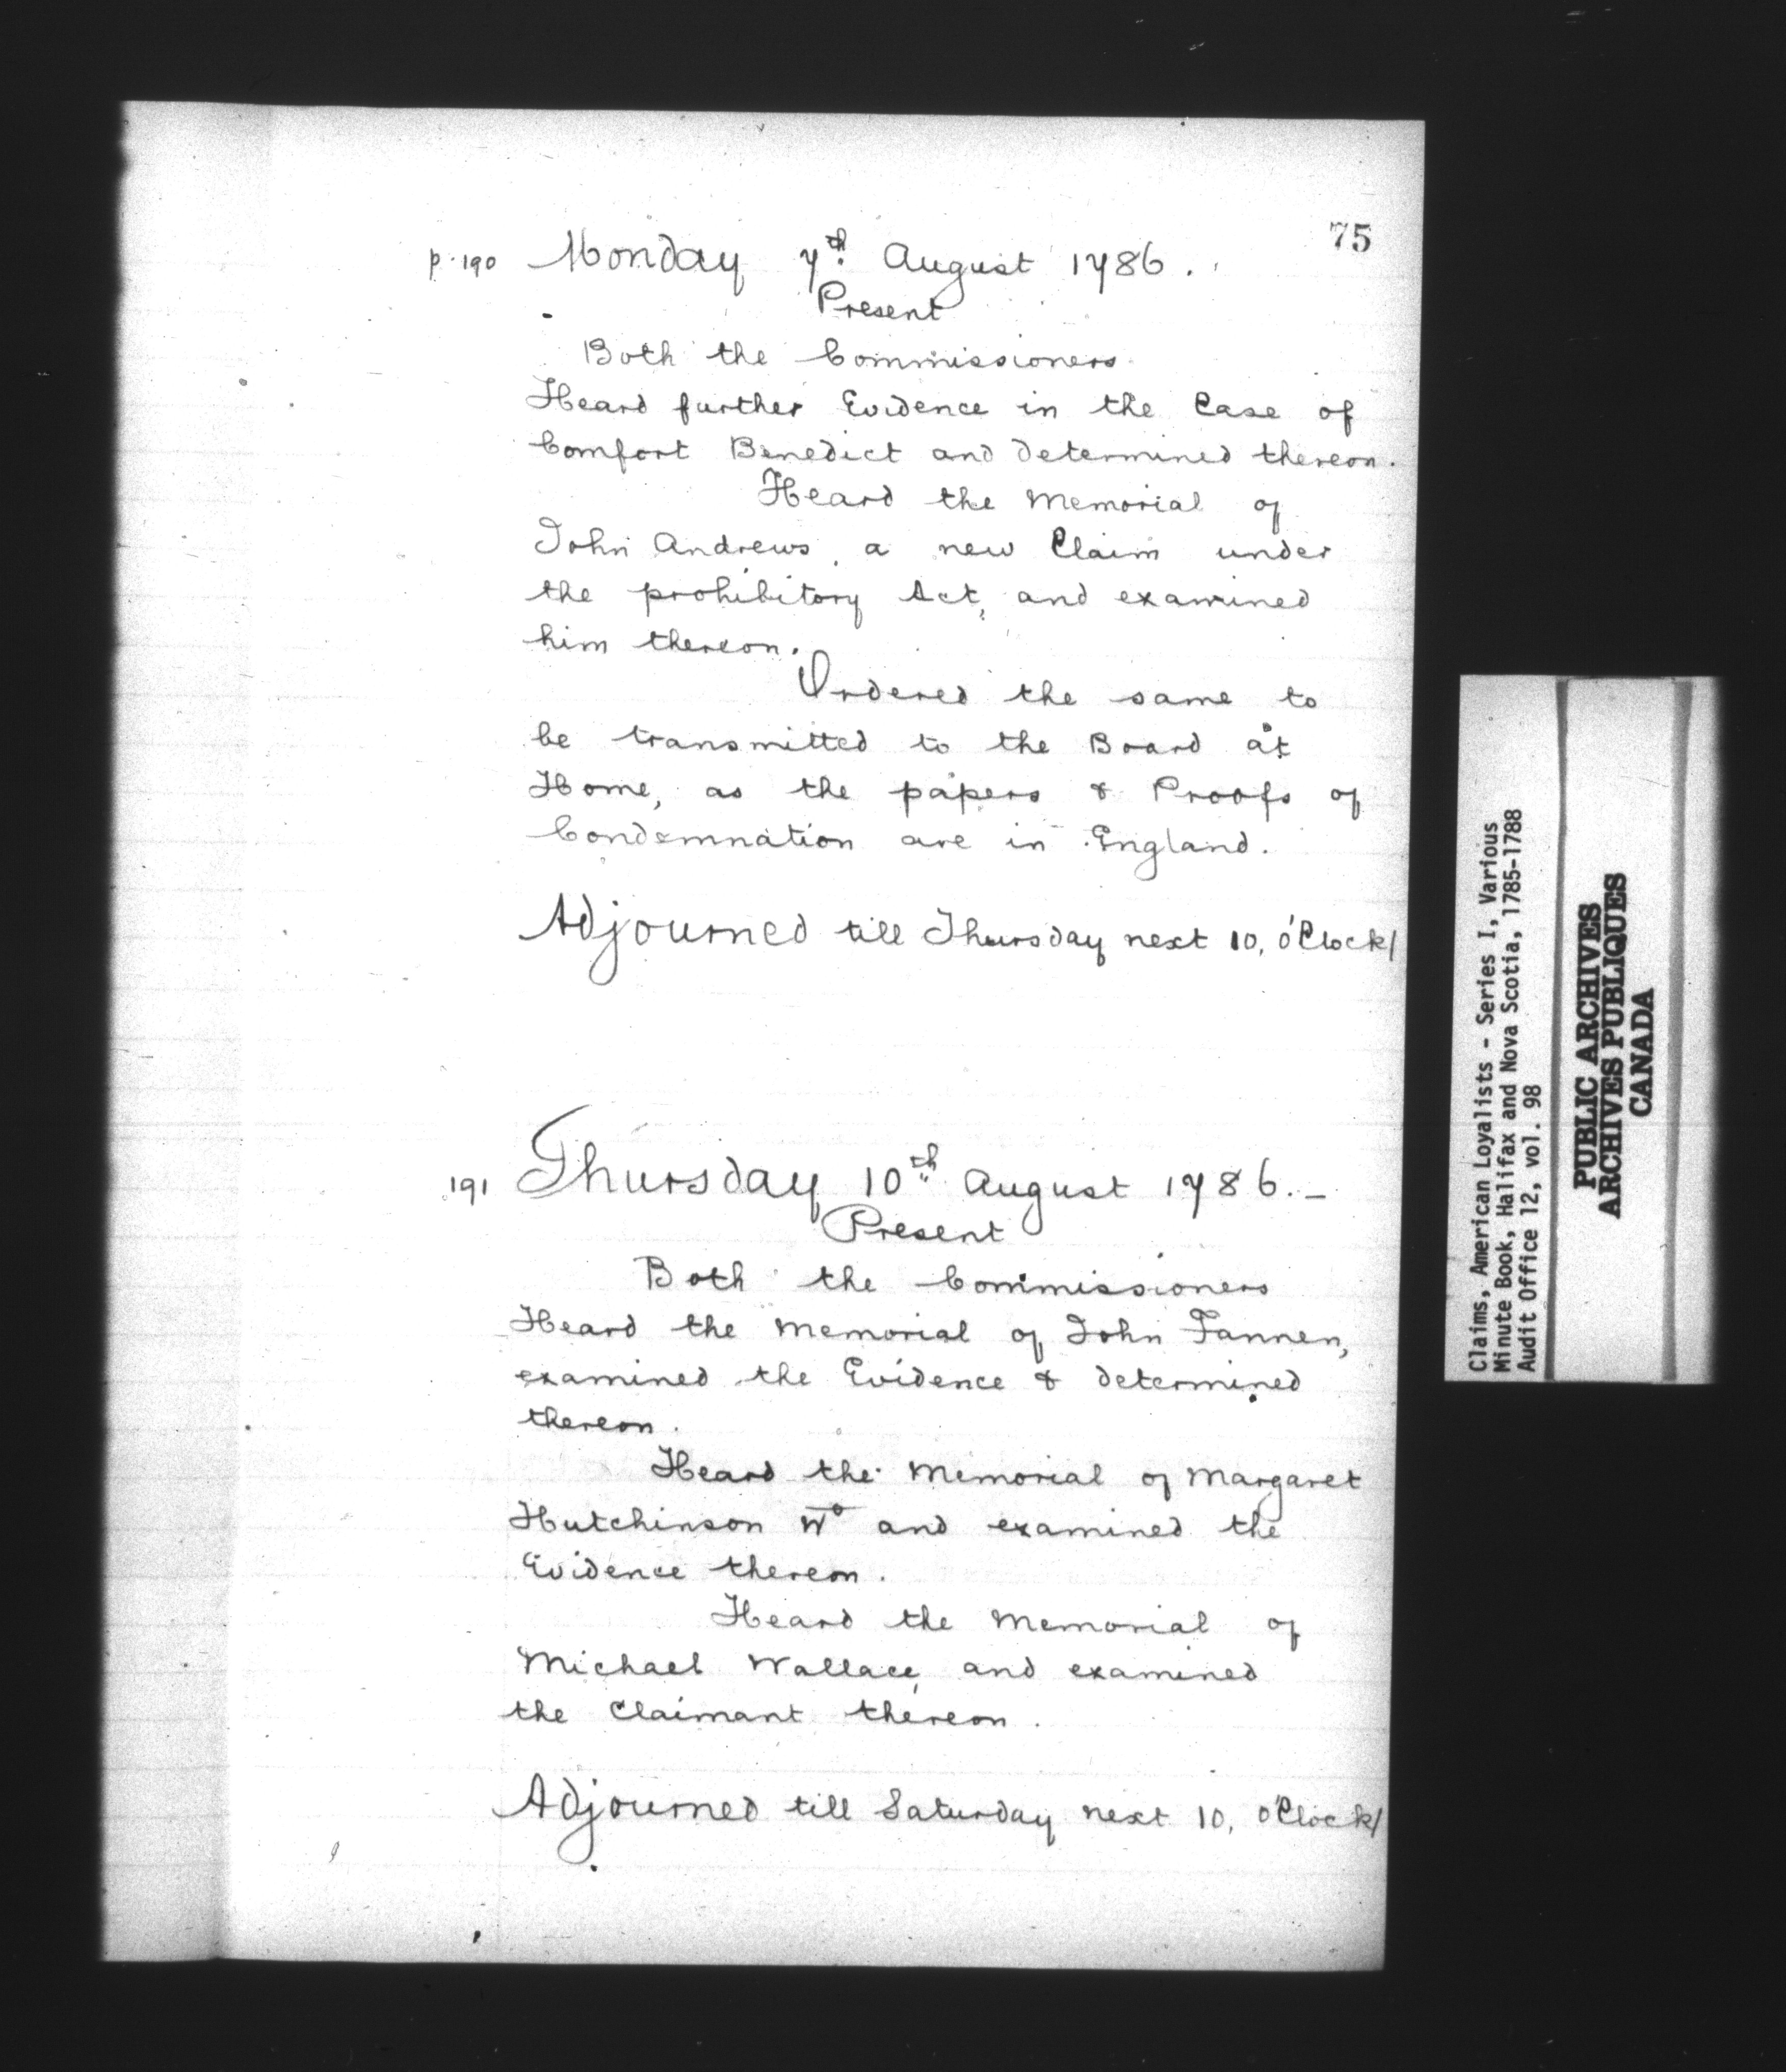 75
p. 190 Monday 7th August 1786.
Present
Both the Commissioners
Heard further Evidence in the Case of
Comfort Benedict and determined thereon.
Heard the Memorial of
John Andrews, a new Claim under
the prohibitory Act, and examined
him thereon.
Ordered the same to
be transmitted to the Board at
Home, as the papers & Proofs of
Condemnation are in England.
Adjourned till Thursday next 10, o'Clock/
191 Thursday 10th August 1786. –
Present
Both the Commissioners
Heard the Memorial of John Fannen,
examined the Evidence & determined
thereon.
Heard the Memorial of Margaret
Hutchinson Wo and examined the
Evidence thereon.
Heard the Memorial of
Michael Wallace, and examined
the Claimant thereon.
Adjourned till Saturday next 10, o'Clock/
Claims, American Loyalists - Series I, Various
Minute Book, Halifax and Nova Scotia, 1785-1788
Audit Office 12, vol. 98
PUBLIC ARCHIVES
ARCHIVES PUBLIQUES
CANADA